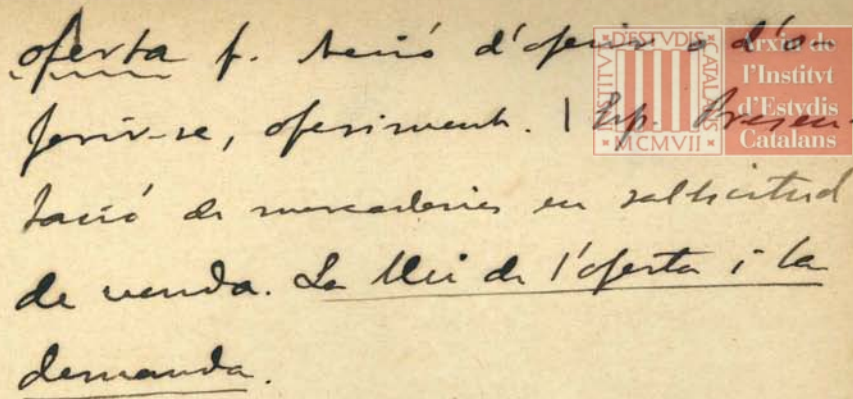 oferta f. Acció d'oferir o d'o-
ferir-se, oferiment. | Esp. Presen-
tació de mercaderies en sol·licitud
de venda. La llei de l'oferta i la
demanda.
INSTITVT D'ESTVDIS CATALANS
MCMVII
Arxiu de
l'Institvt
d'Estvdis
Catalans